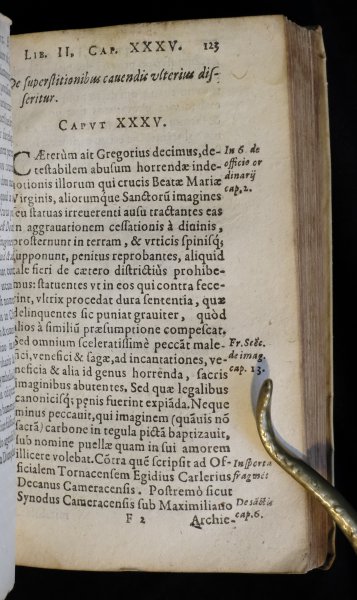 LIB. II, CAP. XXXV. 123
De superstitionibus cauendis vlterius dis-
seritur.
CAPVT XXXV.
CÆterùm ait Gregorius decimus, de-
testabilem abusum horrendæ inde-
uotionis illorum qui crucis Beatæ Mariæ
Virginis, aliorumque Sanctorū imagines
seu statuas irreuerenti ausu tractantes eas
in aggrauationem cessationis à diuinis,
prosternunt in terram, & vrticis spinisq;
supponunt, penitus reprobantes, aliquid
tale fieri de cætero districtiùs prohibe-
mus: statuentes vt in eos qui contra fece-
rint, vltrix procedat dura sententia, quæ
delinquentes sic puniat grauiter, quòd
alios à similiū præsumptione compescat.
Sed omnium sceleratissimè peccāt male-
fici, venefici & sagæ, ad incantationes, ve-
neficia & alia id genus horrenda, sacris
imaginibus abutentes. Sed quæ legalibus
canonicisq; pęnis fuerint expiāda. Neque
minus peccauit, qui imaginem (quāuis nō
sacrā) carbone in tegula pictā baptizauit,
sub nomine puellæ quam in sui amorem
illicere volebat. Cōtra quē scripsit ad Of-
ficialem Tornacensem Egidius Carlerius
Decanus Cameracensis. Postremò sicut
Synodus Cameracensis sub Maximiliano
F 2 Archie-
In 6. de
officio or
dinarij
cap. 2.
Fr. Stēc.
de imag.
cap. 13.
In sporta
fragmēt
De sāctis
cap. 6.